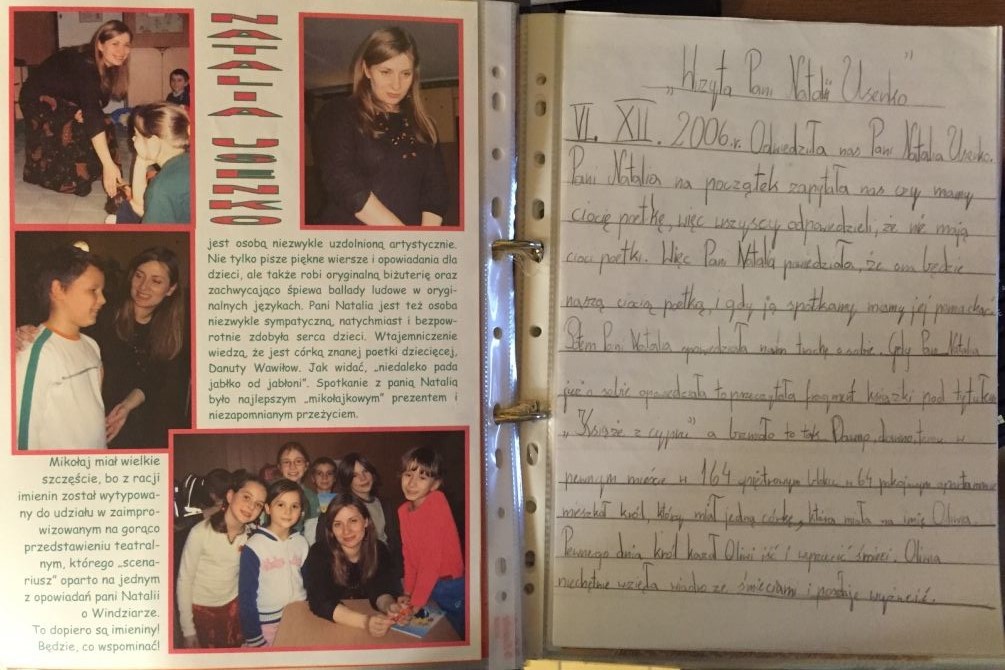 NATALIA USENKO
jest osobą niezwykle uzdolnioną artystycznie.
Nie tylko pisze piękne wiersze i opowiadania dla
dzieci, ale także robi oryginalną biżuterię oraz
zachwycająco śpiewa ballady ludowe w orygi-
nalnych językach. Pani Natalia jest też osobą
niezwykle sympatyczną, natychmiast i bezpow-
rotnie zdobyła serca dzieci. Wtajemniczenie
wiedzą, że jest córką znanej poetki dziecięcej,
Danuty Wawiłow. Jak widać, „niedaleko pada
jabłko od jabłoni". Spotkanie z panią Natalią
było najlepszym „mikołajkowym" prezentem i
niezapomnianym przeżyciem.
Mikołaj miał wielkie
szczęście, bo z racji
imienin został wytypowa-
ny do udziału w zaimpro-
wizowanym na gorąco
przedstawieniu teatral-
nym, którego „scena-
riusz" oparto na jednym
z opowiadań pani Natalii
o Windziarze.
To dopiero są imieniny!
Będzie, co wspominać!
„Wizyta Pani Natalii Usenko"
VI. XII. 2006r. Odwiedziła nas Pani Natalia Usenko.
Pani Natalia na początek zapytała nas czy mamy
ciocię poetkę, więc wszyscy odpowiedzieli, że nie mają
cioci poetki. Więc Pani Natalia powiedziała, że ona będzie
naszą ciocią poetką, i gdy ją spotkamy mamy jej
Potem Pani Natalia opowiedziała nam trochę o sobie. Gdy Pani Natalia
już o sobie opowiedziała to przeczytała fragment książki pod tytułem
„Książe z cypru" a brzmiało to tak Dawno, dawno temu w
pewnym mieście w 164 piętrowym bloku w 64 pokojowym apartamencie
mieszkał król, który miał jedną córkę, która miała na imię Oliwia.
Pewnego dnia król kazał Oliwi iść i wyrzucić śmieci. Oliwia
niechętnie wzięła wiadro ze śmieciami i poszła je wyrzucić.